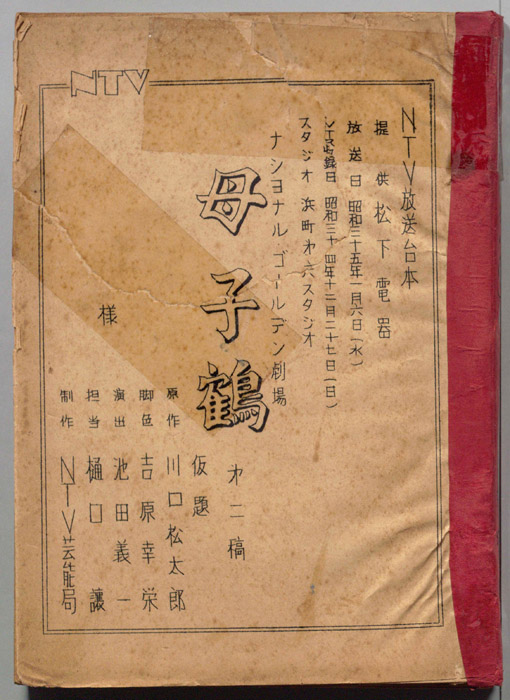 NTV
NTV放送台本
提供 松下電器
放送日 昭和三十五年一月六日(水)
VTR収録日 昭和三十四年十二月二十七日(日)
スタジオ 浜町才六スタジオ
ナショナルゴールデン劇場
母子鶴
才二稿
仮題
原作 川口松太郎
脚色 吉原幸栄
演出 池田義一
担当 樋口 譲
制作 NTV芸能局
様